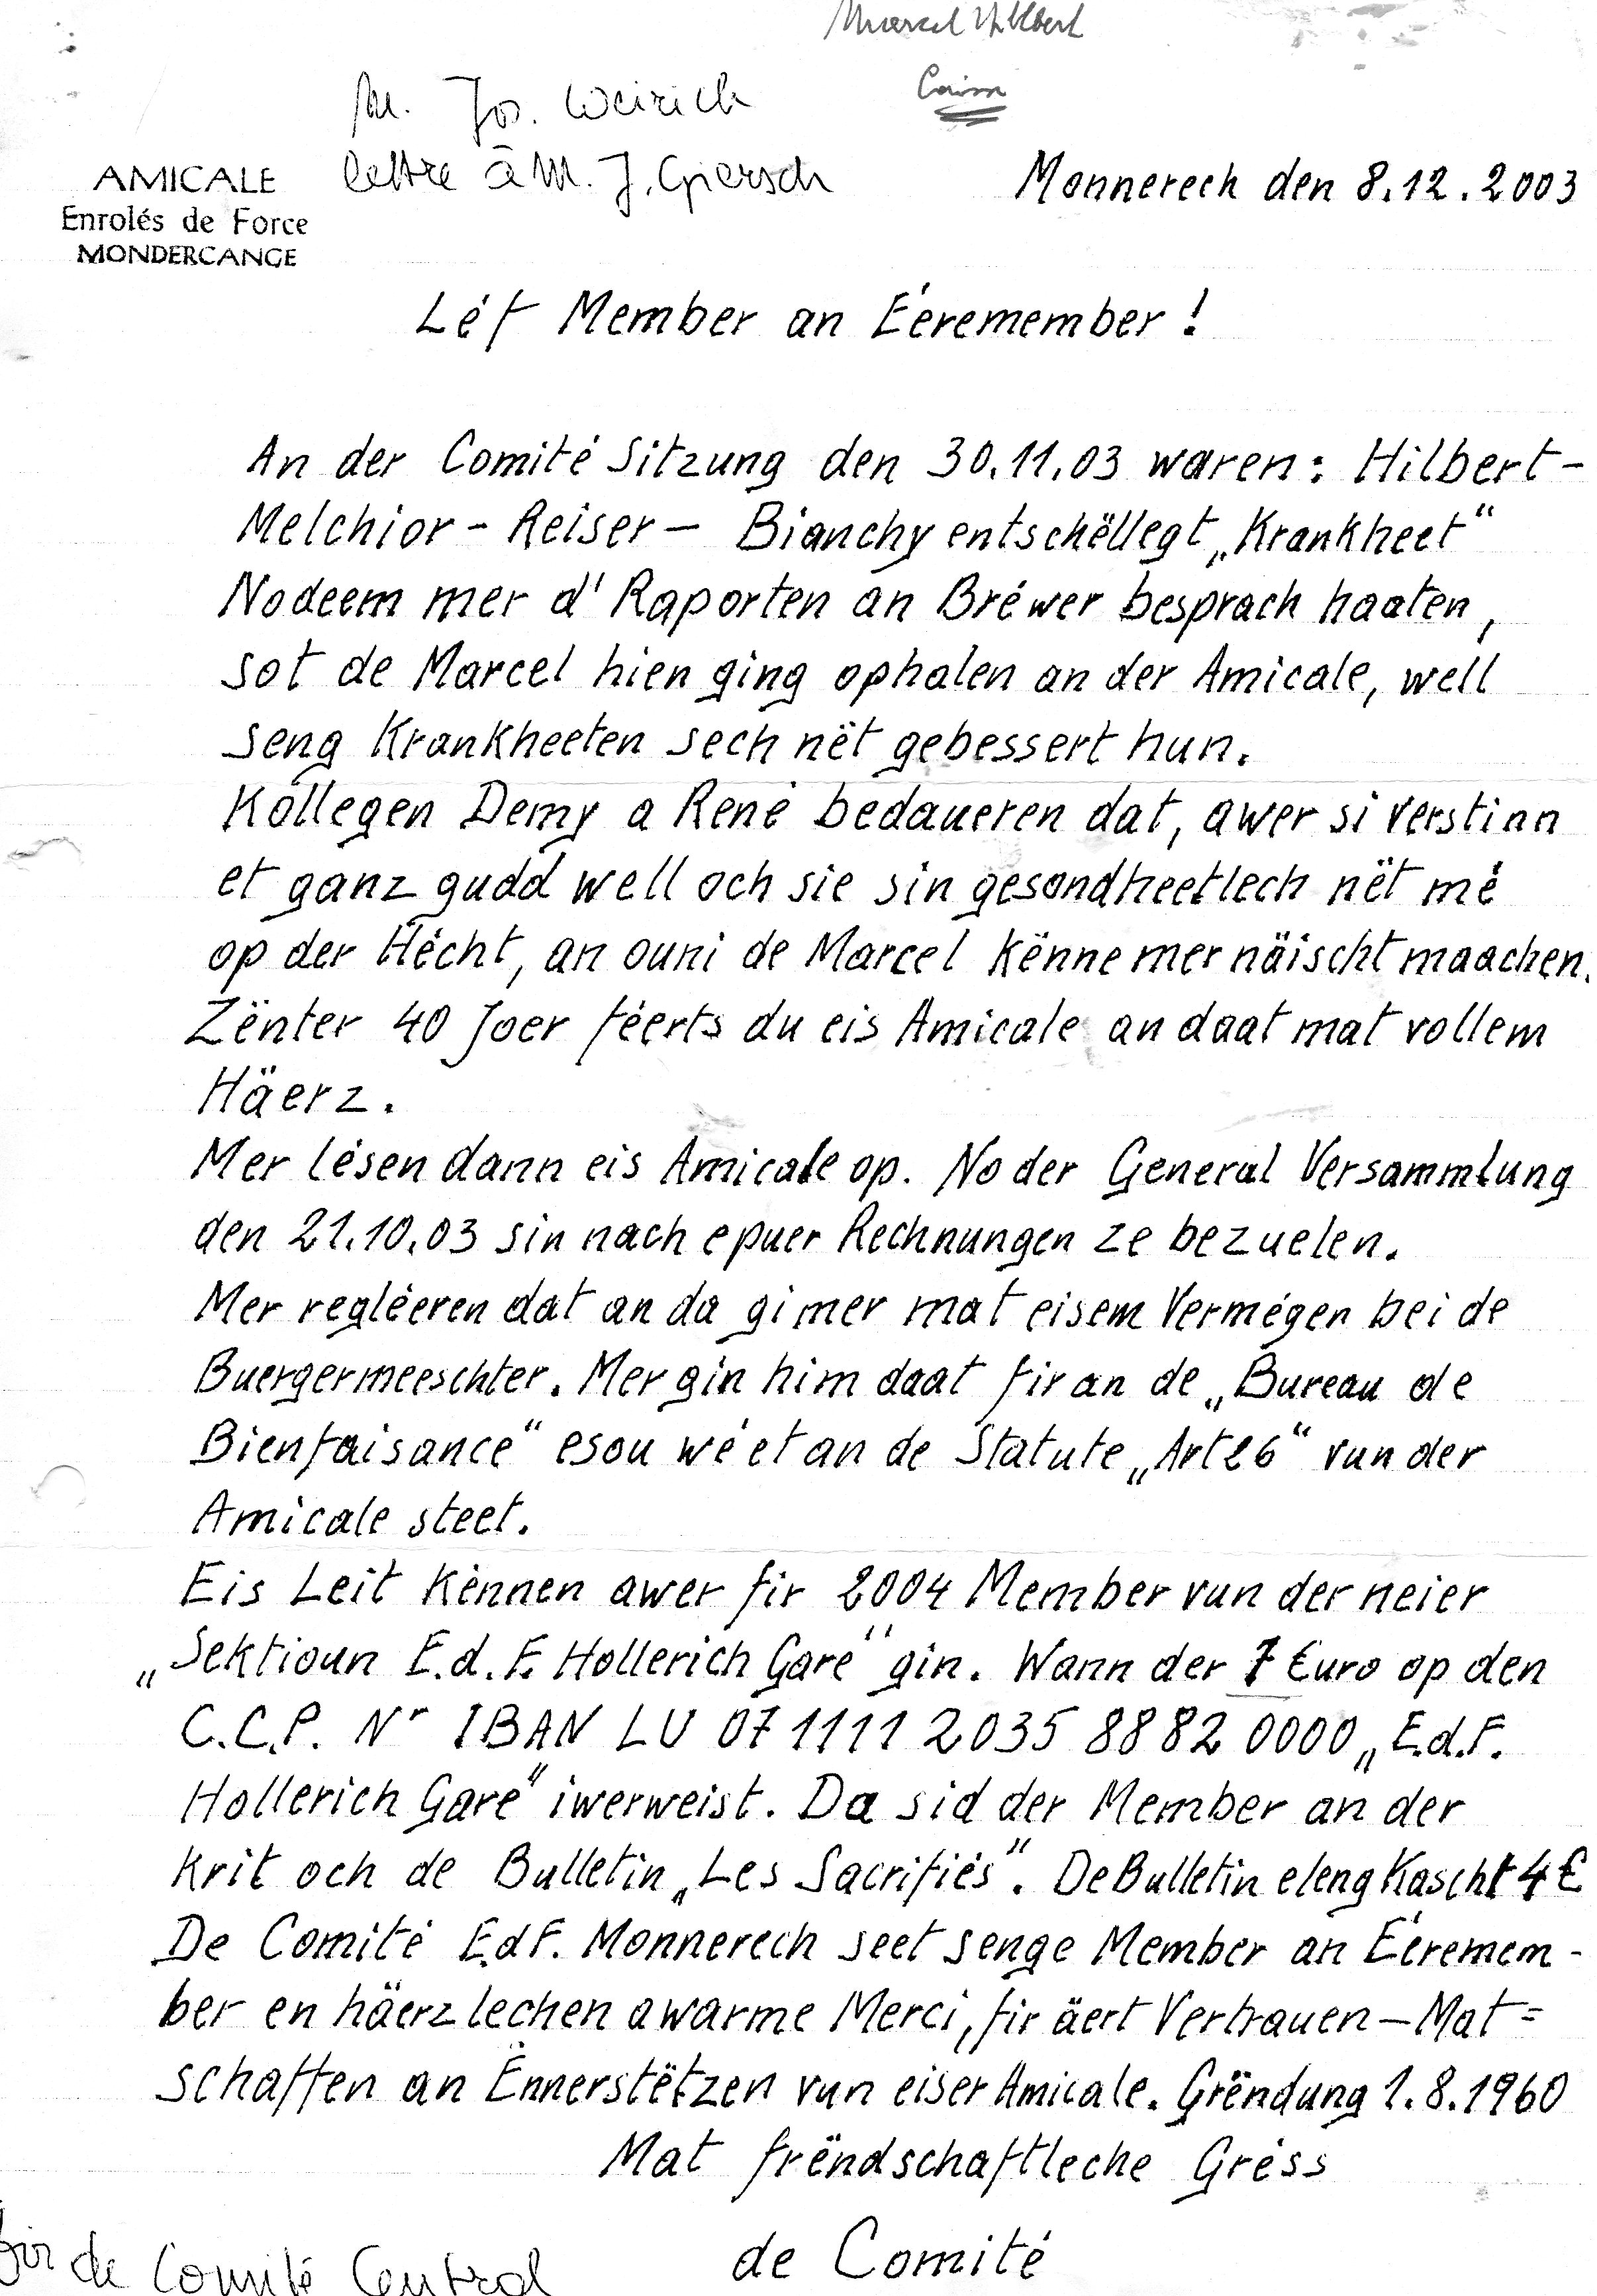 Marcel Hilbert
Caisse
M. Jos. Weirich
lettre à M. J. Giersch
AMICALE
Enrolés de Force
MONDERCANGE
Monnerech den 8.12.2003
Léf Member an Éeremember!
An der Comité Sitzung den 30.11.03 waren: Hilbert-
Melchior - Reiser - Bianchy entschëllegt „Krankheet"
Nodeem mer d'Raporten an Bréwer besprach haaten,
sot de Marcel hien ging ophalen an der Amicale, well
seng Krankheeten sech nët gebessert hun.
Kollegen Demy a René bedaueren dat, awer si verstinn
et ganz gudd well och sie sin gesondheetlech nët mé
op der Hécht, an ouni de Marcel kënne mer näischt maachen.
Zënter 40 Joer féerts du eis Amicale an daat mat vollem
Häerz.
Mer lésen dann eis Amicale op. No der General Versammlung
den 21.10.03 sin nach epuer Rechnungen ze bezuelen.
Mer regléeren dat an da gi mer mat eisem Vermégen bei de
Buergermeeschter. Mer gin him daat fir an de „Bureau de
Bienfaisance" esou wé et an de Statute „Art 26" vun der
Amicale steet.
Eis Leit kënnen awer fir 2004 Member vun der neier
„Sektioun E.d.F. Hollerich Gare" gin. Wann der 7 Euro op den
C.C.P. Nr IBAN LU 07 1111 2035 8882 0000 „E.d.F.
Hollerich Gare" iwerweist. Da sid der Member an der
krit och de Bulletin „Les Sacrifiés". De Bulletin eleng kascht 4 €
De Comité EdF. Monnerech seet senge Member an Éeremem-
ber en häerzlechen a warme Merci, fir äert Vertrauen - Mat=
schaffen an Ënnerstëtzen vun eiser Amicale. Grëndung 1.8.1960
Mat frëndschaftleche Gréss
de Comité
fir de Comité Central